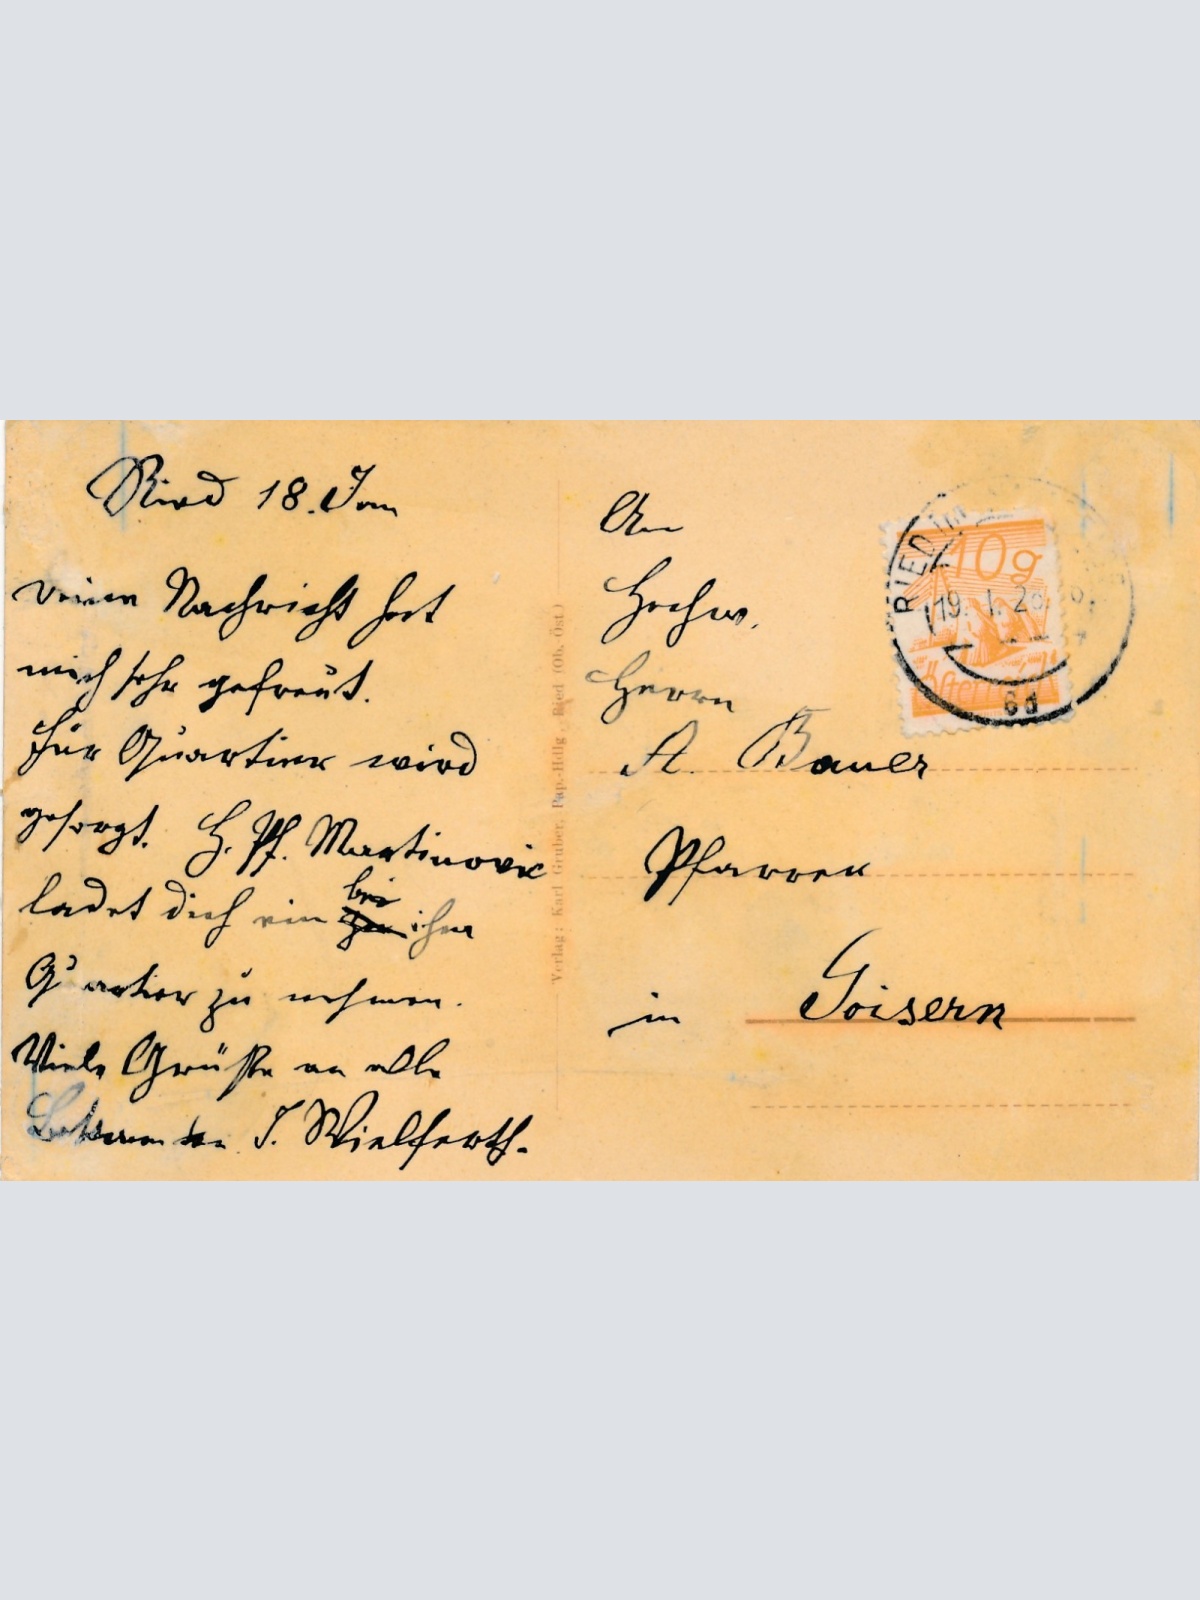 Ried 18. Jan
Deine Nachricht hat
mich sehr gefreut.
Für Quartier wird
gesorgt. H. Pf. Martinovic
ladet dich ein bei ihm
Quartier zu nehmen.
Viele Grüße an alle
Bekannten J. Wielferth.
Verlag: Karl Gruber, Pap.-Hdlg., Ried (Ob. Öst.)
An
Hochw.
Herrn
A. Bauer
Pfarrer
in Goisern
RIED IM
19. I. 26
6d
10g
Österreich